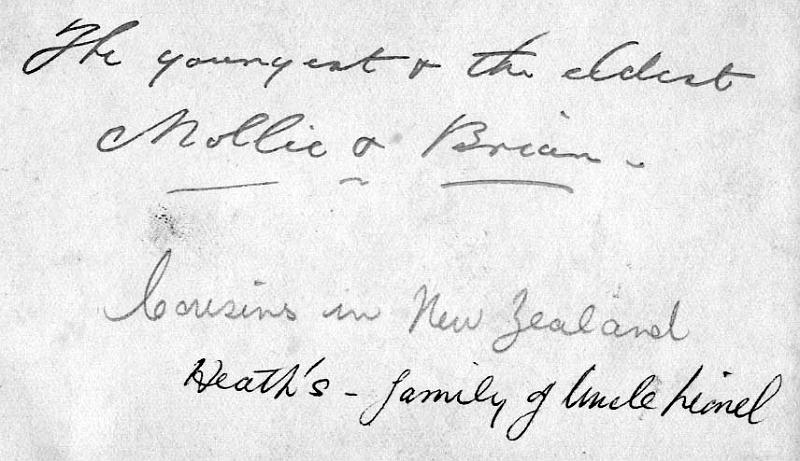 The youngest & the eldest
Mollie & Brian -
Cousins in New Zealand
Heath's - family of Uncle Lionel